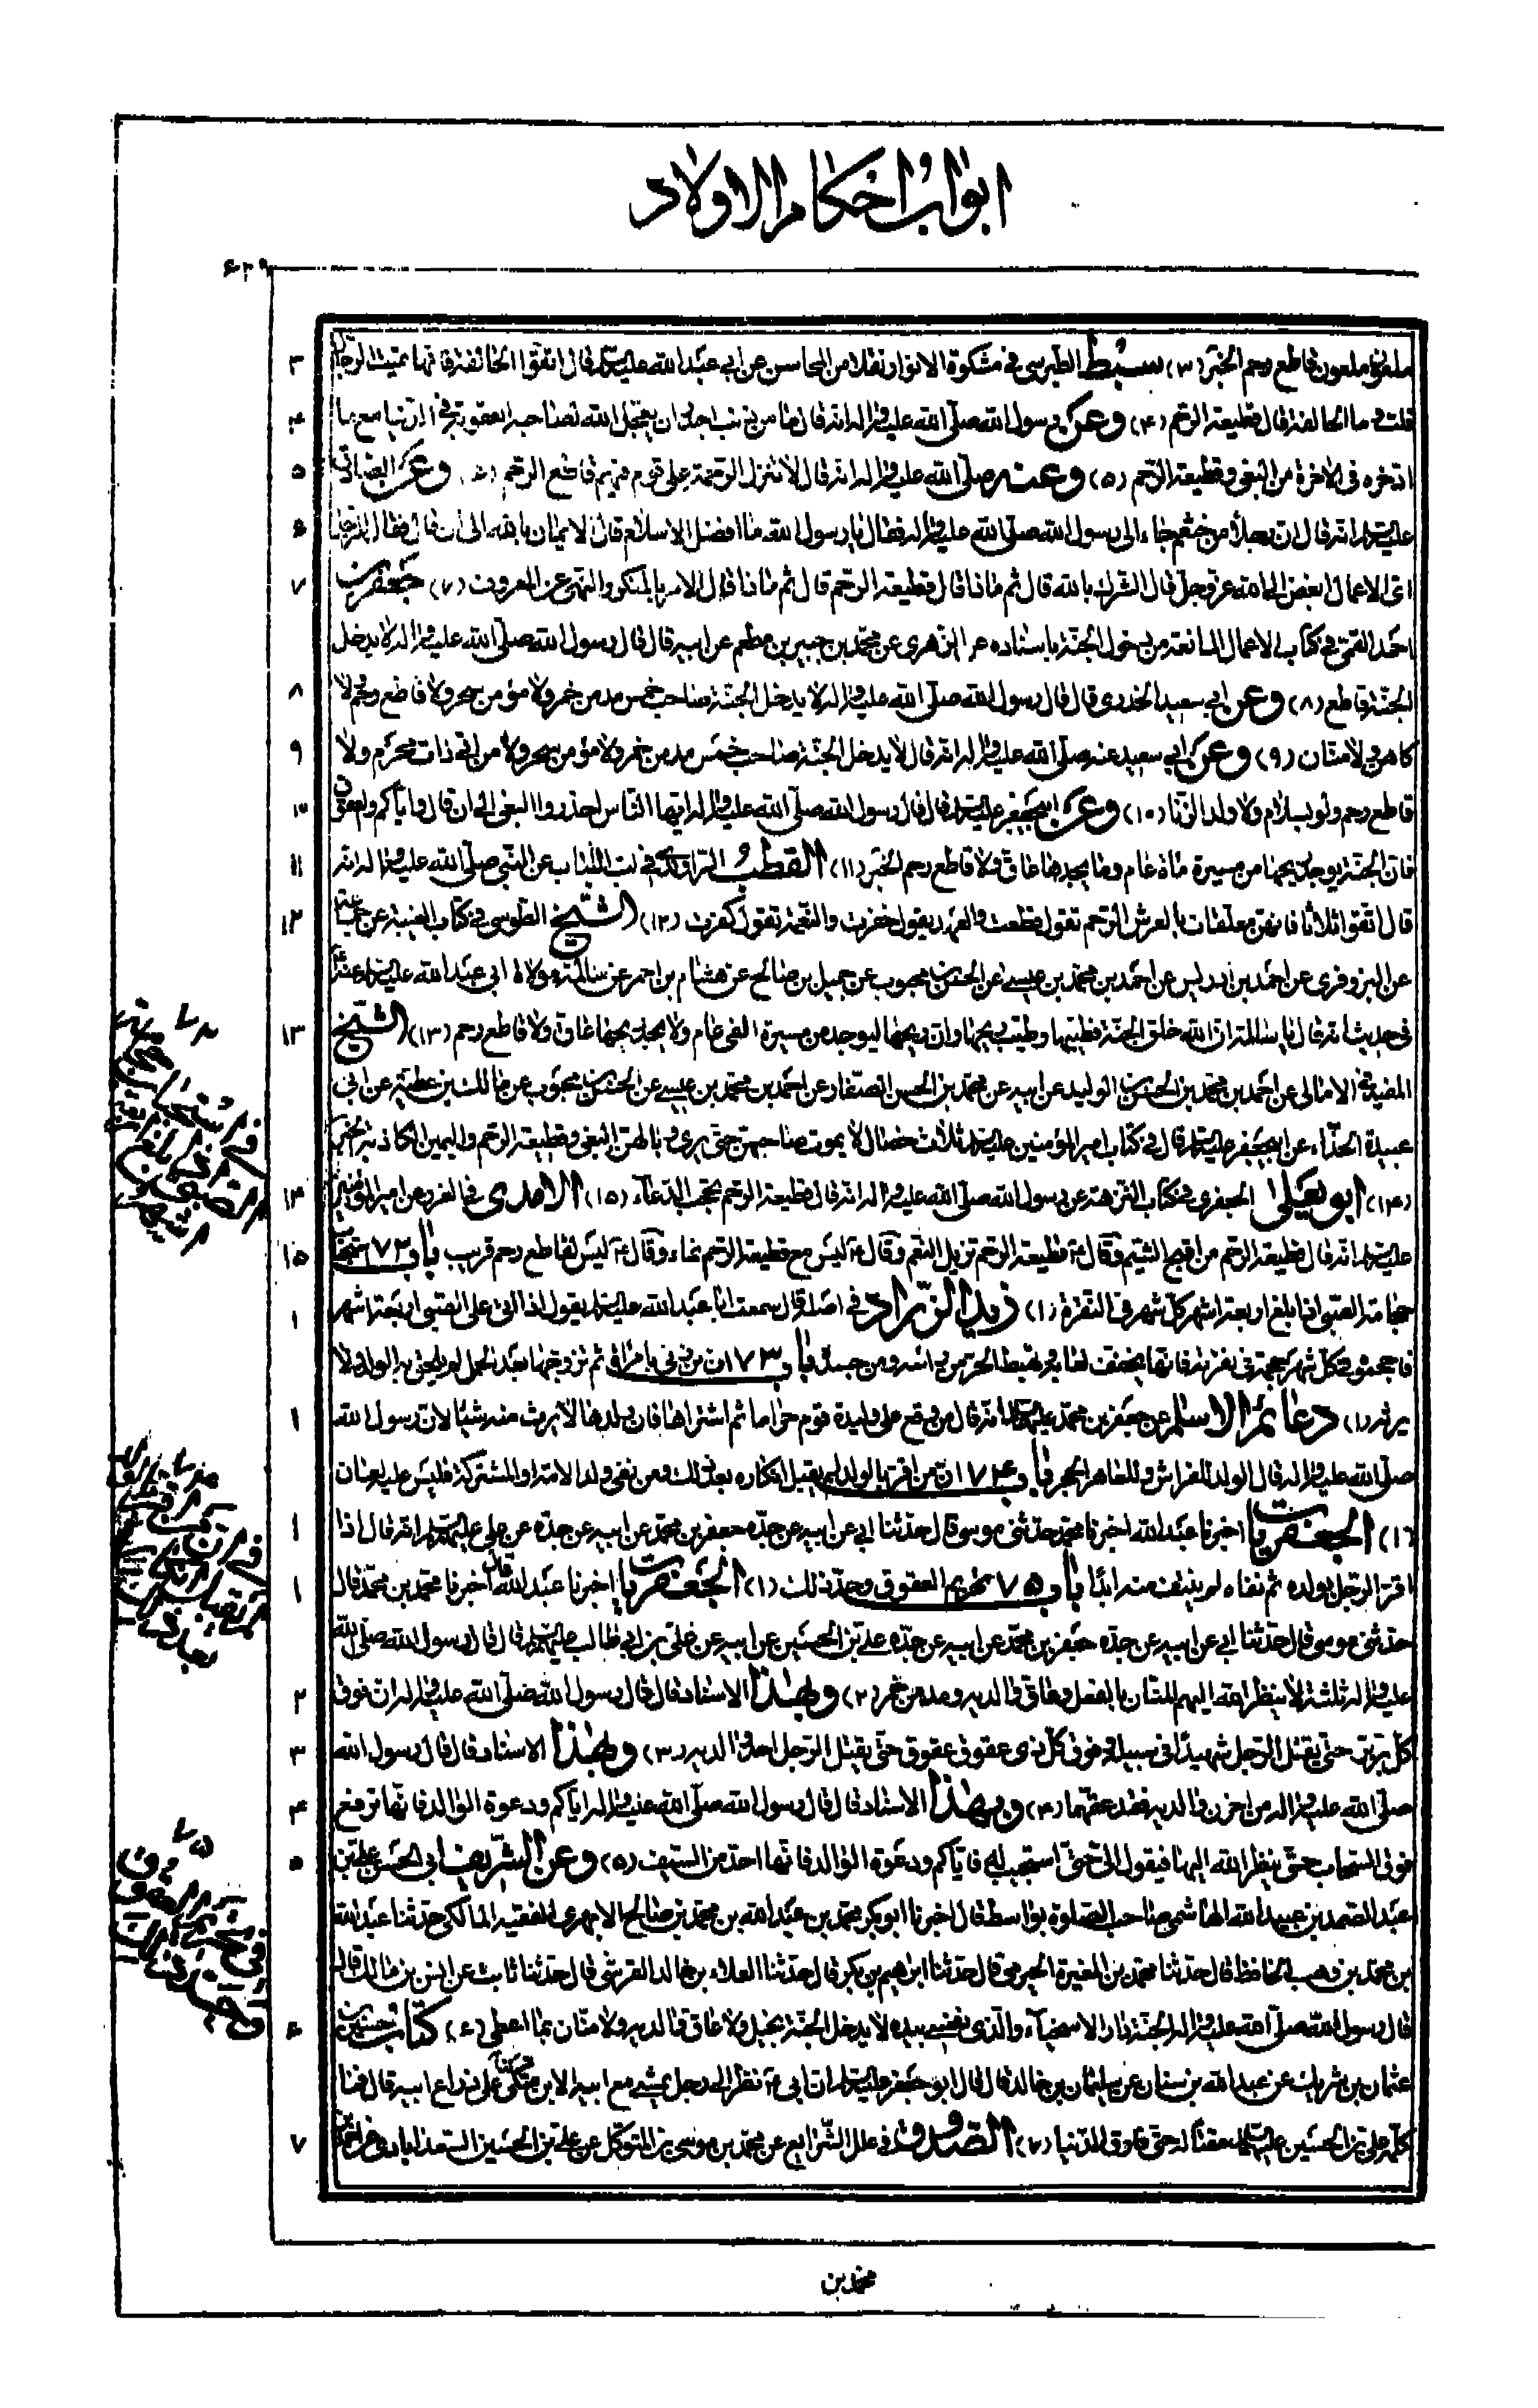 ابواب احكام الاولاد
۶۲۹
ملعون ملعون قاطع رحم الخبر (۳) سبط الطبرسى فى مشكوة الانوار نقلا من المحاسن عن ابى عبد الله عليه السلام قال اتقوا الحالقة فانها تميت الرجال ۳
قلت و ما الحالقة قال قطيعة الرحم (۴) وعن رسول الله صلى الله عليه و اله انه قال ما من ذنب اجدر ان يعجل الله لصاحبه العقوبة فى الدنيا مع ما ۴
ادخره فى الاخرة من البغى و قطيعة الرحم (۵) وعنه صلى الله عليه و اله انه قال لا تنزل الرحمة على قوم فيهم قاطع الرحم (۶) وعن الصادق ۵
عليه السلام انه قال ان رجلا من خثعم جاء الى رسول الله صلى الله عليه و اله فقال يا رسول الله ما افضل الاسلام قال الايمان بالله الى ان قال فقال الرجل ۶
اى الاعمال ابغض الى الله عز وجل قال الشرك بالله قال ثم ما ذا قال قطيعة الرحم قال ثم ما ذا قال الامر بالمنكر والنهى عن المعروف (۷) جعفر بن ۷
احمد القمى فى كتاب الاعمال المانعة من دخول الجنة باسناده عن الزهرى عن محمد بن جبير بن مطعم عن ابيه قال قال رسول الله صلى الله عليه و اله لا يدخل
الجنة قاطع (۸) وعن ابى سعيد الخدرى قال قال رسول الله صلى الله عليه و اله لا يدخل الجنة صاحب خمس مدمن خمر ولا مؤمن بسحر ولا قاطع رحم ولا ۸
كاهن ولا منان (۹) وعن ابى سعيد عنه صلى الله عليه و اله انه قال لا يدخل الجنة صاحب خمس مدمن خمر ولا مؤمن بسحر ولا من اتى ذات محرم ولا ۹
قاطع رحم ولو بسلام ولا ولد الزنا (۱۰) وعن ابى جعفر عليه السلام قال قال رسول الله صلى الله عليه و اله ايها الناس احذروا البغى الى ان قال و اياكم والعقوق ۱۰
فان الجنة يوجد ريحها من مسيرة مأة عام وما يجدها عاق ولا قاطع رحم الخبر (۱۱) القطب الراوندى فى لب اللباب عن النبى صلى الله عليه و اله انه ۱۱
قال اتقوا ثلاثا فانهن معلقات بالعرش الرحم تقول قطعت والعهد يقول خفرت والنعمة تقول كفرت (۱۲) الشيخ الطوسى فى كتاب الغيبة عن جماعة ۱۲
عن البزوفرى عن احمد بن ادريس عن احمد بن محمد بن عيسى عن الحسن بن محبوب عن جميل بن صالح عن هشام بن احمر عن سالمة مولاة ابى عبد الله عليه السلام عنه
فى حديث انه قال يا سالمة ان الله خلق الجنة فطيبها وطيب ريحها وان ريحها ليوجد من مسيرة الفى عام ولا يجد ريحها عاق ولا قاطع رحم (۱۳) الشيخ ۱۳
المفيد فى الامالى عن احمد بن محمد بن الحسن بن الوليد عن ابيه عن محمد بن الحسن الصفار عن احمد بن محمد بن عيسى عن الحسن بن محبوب عن مالك بن عطية عن ابى
عبيدة الحذاء عن ابى جعفر عليه السلام قال فى كتاب امير المؤمنين عليه السلام ثلاث خصال لا يموت صاحبهن حتى يرى وبالهن البغى وقطيعة الرحم واليمين الكاذبة الخبر
(۱۴) ابو يعلى الجعفرى فى كتاب النزهة عن رسول الله صلى الله عليه و اله انه قال قطيعة الرحم يحجب الدعاء (۱۵) الامدى فى الغرر عن امير المؤمنين ۱۴
عليه السلام انه قال قطيعة الرحم من اقبح الشيم وقال ع قطيعة الرحم تزيل النعم وقال ع ليس مع قطيعة الرحم نماء وقال ع ليس لقاطع رحم قريب باب ۷۲ استحباب ۱۵
حجامة الصبى اذا بلغ اربعة اشهر كل شهر فى النقرة (۱) زيد الزراد فى اصله قال سمعت ابا عبد الله عليه السلام يقول اذا اتى على الصبى اربعة اشهر ۱
فاحجموه فى كل شهر حجمة فى نقرته فانها تخفف لعابه ويهبط الحر من راسه ومن جسده باب ۷۳ ان من زنى بامراة ثم تزوجها بعد الحمل لم يلحق به الولد ولا
يرثه (۱) دعائم الاسلام عن جعفر بن محمد عليهما السلام انه قال من وقع على وليدة قوم حراما ثم اشتراها فان ولدها لا يرث منه شيئا لان رسول الله ۱
صلى الله عليه و اله قال الولد للفراش و للعاهر الحجر باب ۷۴ ان من اقر بالولد لم يقبل انكاره بعد ذلك ومن نفى ولد الامة او المشتركة فليس عليه لعان
(۱) الجعفريات اخبرنا عبد الله اخبرنا محمد حدثنى موسى قال حدثنا ابى عن ابيه عن جده جعفر بن محمد عن ابيه عن جده عن على عليهم السلام انه قال اذا ۱
اقر الرجل بولده ثم نفاه لم ينتف منه ابدا باب ۷۵ تحريم العقوق وحد ذلك (۱) الجعفريات اخبرنا عبد الله قال اخبرنا محمد بن محمد قال ۱
حدثنى موسى قال حدثنا ابى عن ابيه عن جده جعفر بن محمد عن ابيه عن جده على بن الحسين عن ابيه عن على بن ابى طالب عليهم السلام قال قال رسول الله صلى الله
عليه و اله ثلثة لا ينظر الله اليهم المنان بالفعل وعاق والديه ومدمن خمر (۲) وبهذا الاسناد قال قال رسول الله صلى الله عليه و اله ان فوق ۲
كل بر بر حتى يقتل الرجل شهيدا فى سبيله و فوق كل ذى عقوق عقوق حتى يقتل الرجل احد والديه (۳) وبهذا الاسناد قال قال رسول الله ۳
صلى الله عليه و اله من احزن والديه فقد عقهما (۴) وبهذا الاسناد قال قال رسول الله صلى الله عليه و اله اياكم ودعوة الوالد فانها ترفع ۴
فوق السحاب حتى ينظر الله اليها فيقول الى حتى استجيب له فاياكم ودعوة الوالد فانها احد من السيف (۵) وعن الشريف ابى الحسن على بن ۵
عبد الصمد بن عبيد الله الهاشمى صاحب الصلوة بواسط قال اخبرنا ابو بكر محمد بن عبد الله بن محمد بن صالح الابهرى الفقيه المالكى حدثنا عبد الله
بن محمد بن وهب الحافظ قال حدثنا محمد بن المغيرة الجرمى قال حدثنا ابراهيم بن بكر قال حدثنا العلاء بن خالد القرشى قال حدثنا ثابت عن انس بن مالك قال
قال رسول الله صلى الله عليه و اله الجنة دار الاسخياء والذى نفسى بيده لا يدخل الجنة بخيل ولا عاق والديه ولا منان بما اعطى (۶) كتاب حسين بن ۶
عثمان بن شريك عن عبد الله بن سنان عن سليمان بن خالد قال قال ابو جعفر عليه السلام ان ابى ع نظر الى رجل يمشى مع ابيه الابن متكئ على ذراع ابيه قال فما
كلمه على بن الحسين عليهما السلام مقتا له حتى فارق الدنيا (۷) الصدوق فى علل الشرايع عن محمد بن موسى بن المتوكل عن على بن الحسين السعدابادى عن احمد بن ۷
محمد بن